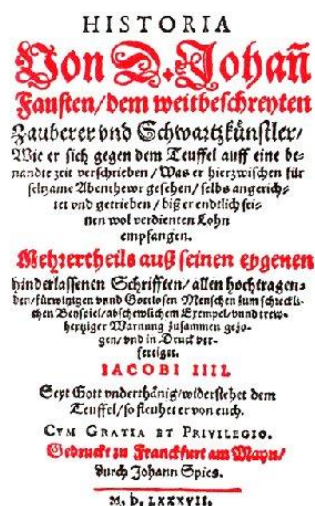 HISTORIA
Von D. Johañ
Fausten/dem weitbeschreyten
Zauberer vnd Schwartzkünstler/
Wie er sich gegen dem Teuffel auff eine be-
nandte zeit verschrieben/ Was er hierzwischen für
seltzame Abenthewr gesehen/ selbs angerich-
tet vnd getrieben/ biß er endtlich sei-
nen wol verdienten Lohn
empfangen.
Mehrertheils auß seinen eygenen
hinderlassenen Schrifften/ allen hochtragen-
den/ fürwitzigen vnnd Gottlosen Menschen zum schreckli-
chen Beyspiel/ abschewlichem Exempel/ vnnd trew-
hertziger Warnung zusammen gezo-
gen/ vnd in Druck ver-
fertiget.
IACOBI IIII.
Seyt Gott vnderthänig/ widerstehet dem
Teuffel/ so fleuhet er von euch.
CVM GRATIA ET PRIVILEGIO.
Gedruckt zu Franckfurt am Mayn/
durch Johann Spies.
M. D. LXXXVII.